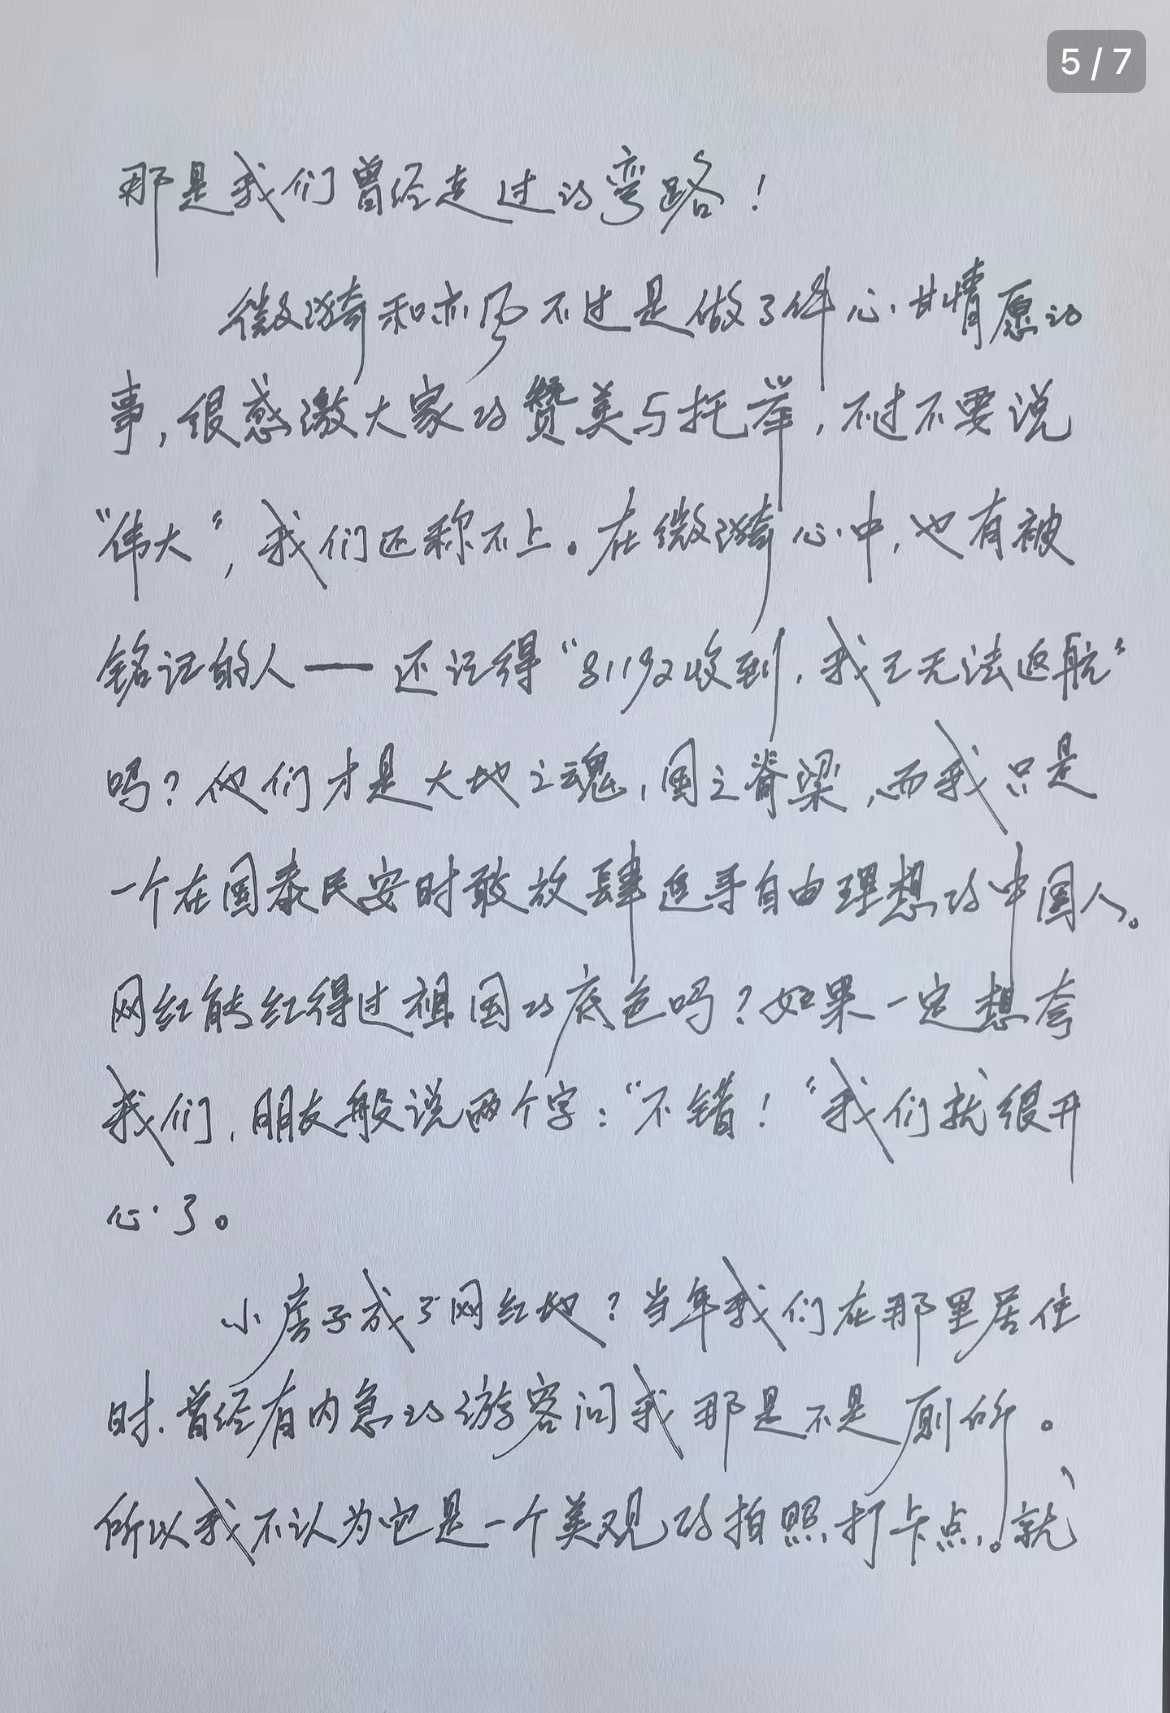 5 / 7
那是我们曾经走过的弯路！
微漪和亦风不过是做了件心甘情愿的
事，很感激大家的赞美与托举，不过不要说
“伟大”，我们还称不上。在微漪心中，也有被
铭记的人——还记得“81192收到，我已无法返航”
吗？他们才是大地之魂，国之脊梁，而我只是
一个在国泰民安时敢放肆追寻自由理想的中国人。
网红能红得过祖国的底色吗？如果一定想夸
我们，朋友般说两个字：“不错！”我们就很开
心了。
小房子成了网红地？当年我们在那里居住
时，曾经有内急的游客问我那是不是厕所。
所以我不认为它是一个美观的拍照打卡点。就